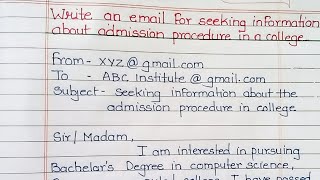 Write an email for seeking information
about admission procedure in a college.
From- xyz@gmail.com
To - ABC Institute@gmail.com
Subject- seeking information about the
admission procedure in college
Sir/Madam,
I am interested in pursuing
Bachelar's Degree in computer science,
college. I have passed